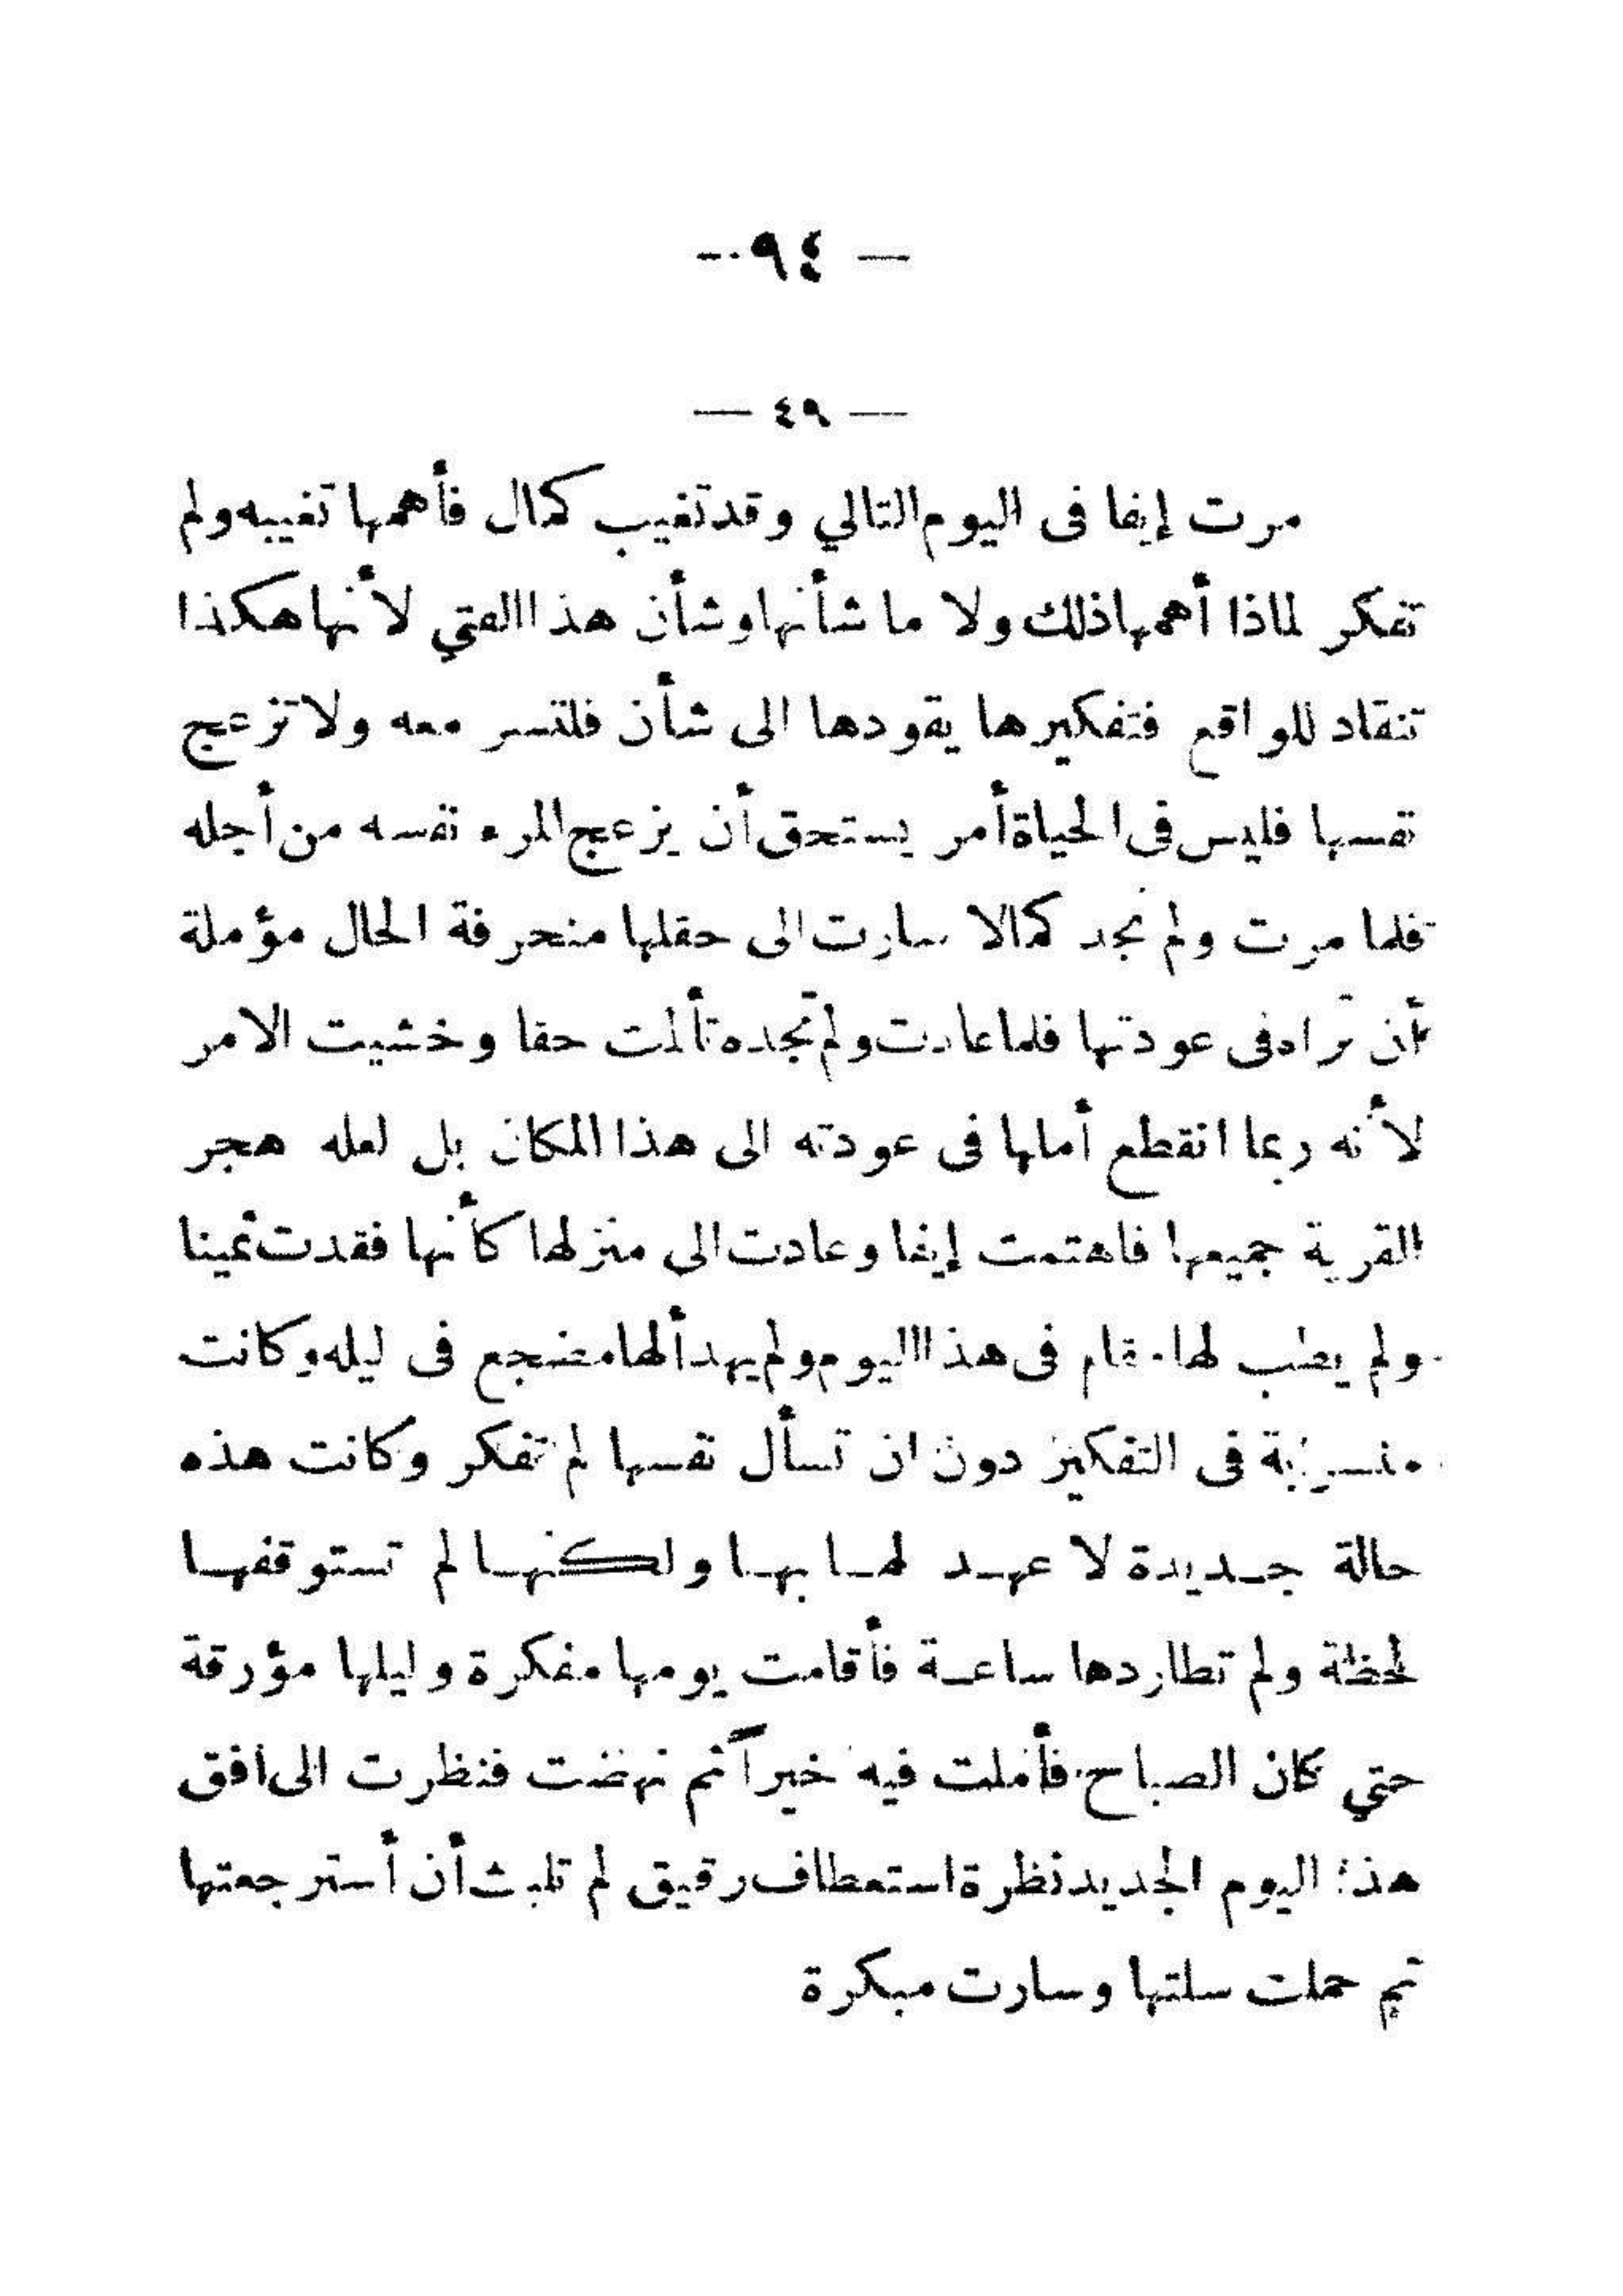 — ٩٤ —
— ٤٩ —
مرت إيفا فى اليوم التالي وقد تغيب كمال فأهمها تغيبه ولم
تفكر لماذا أهمها ذلك ولا ما شأنها وشأن هذا الفتي لأنها هكذا
تنقاد للواقع فتفكيرها يقودها الى شأن فلتسر معه ولا تزعج
نفسها فليس فى الحياة أمر يستحق أن يزعج المرء نفسه من أجله
فلما مرت ولم تجد كمالا سارت الى حقلها منحرفة الحال مؤملة
أن تراه فى عودتها فلما عادت ولم تجده تألمت حقا وخشيت الامر
لأنه ربما انقطع أملها فى عودته الى هذا المكان بل لعله هجر
القرية جميعها فاهتمت إيفا وعادت الى منزلها كأنها فقدت ثمينا
ولم يطب لها مقام فى هذا اليوم ولم يهدأ لها مضجع فى ليله وكانت
فى التفكير دون ان تسأل نفسها لم تفكر وكانت هذه
حالة جديدة لا عهد لها بها ولكنها لم تستوقفها
لحظة ولم تطاردها ساعة فأقامت يومها مفكرة وليلها مؤرقة
حتي كان الصباح فأملت فيه خيراً ثم نهضت فنظرت الى افق
هذا اليوم الجديد نظرة استعطاف رقيق لم تلبث أن أسترجعتها
ثم حملت سلتها وسارت مبكرة